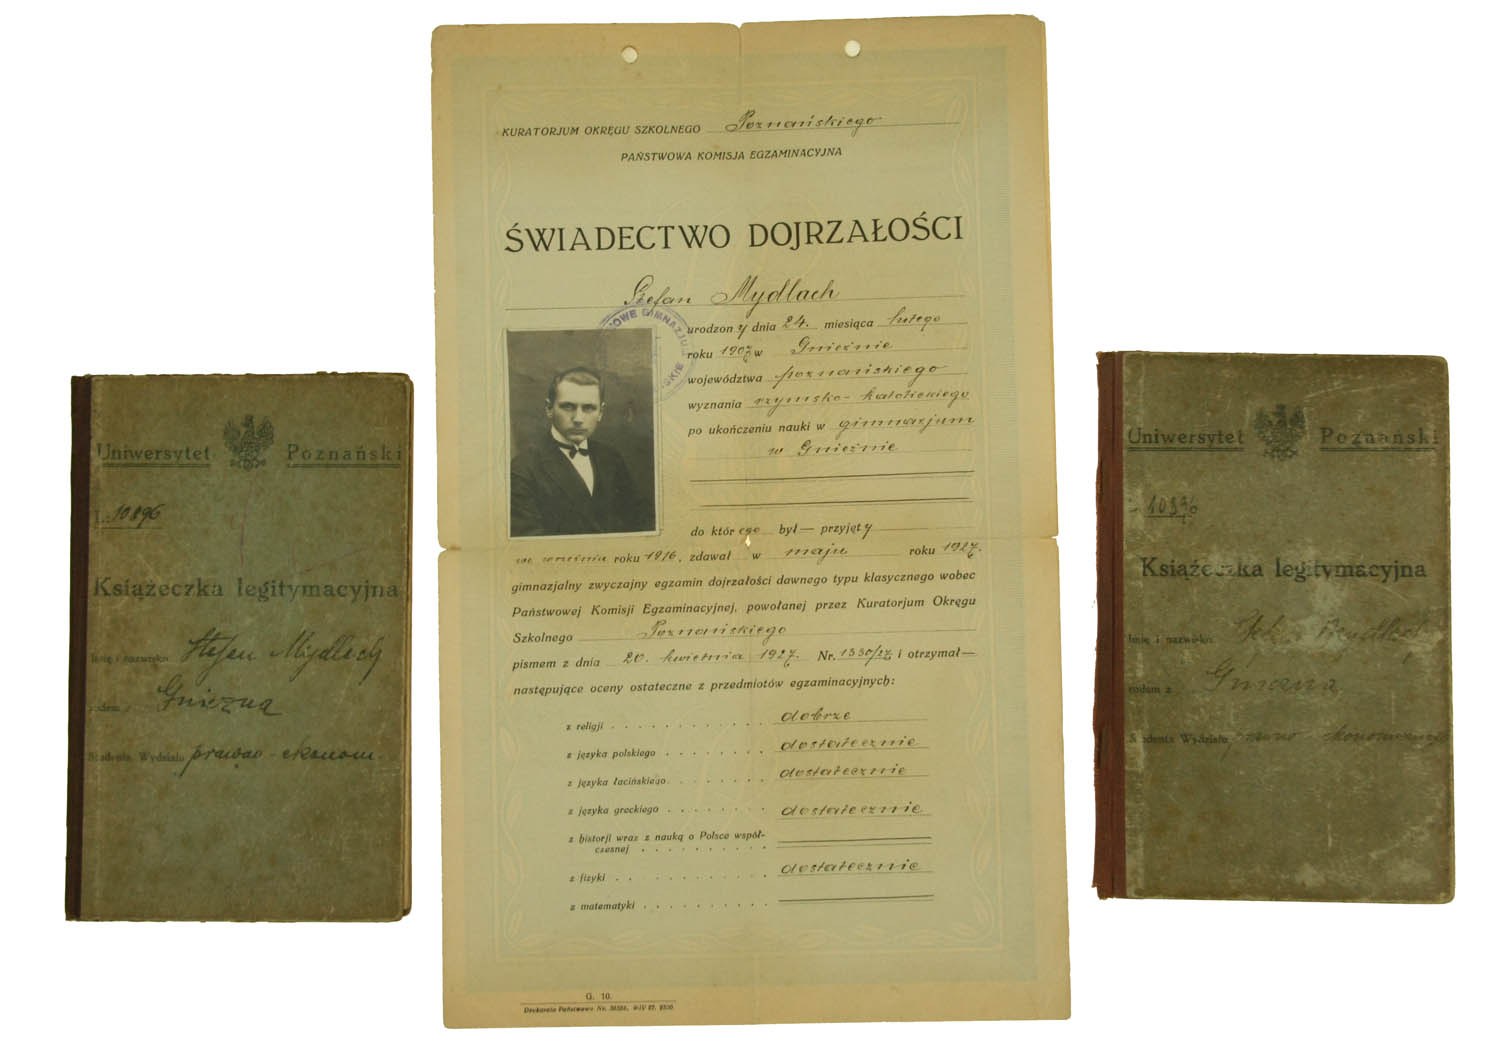 Uniwersytet Poznański
L. 10896
Książeczka legitymacyjna
Imię i nazwisko Stefan Mydlach
rodem z Gniezna
Studenta Wydziału prawno-ekonom.
KURATORJUM OKRĘGU SZKOLNEGO Poznańskiego
PAŃSTWOWA KOMISJA EGZAMINACYJNA
ŚWIADECTWO DOJRZAŁOŚCI
Stefan Mydlach
urodzony dnia 24. miesiąca lutego
roku 1907 w Gnieźnie
województwa poznańskiego
wyznania rzymsko-katolickiego
po ukończeniu nauki w gimnazjum
w Gnieźnie
do którego był — przyjęty
we wrześniu roku 1916, zdawał w maju roku 1927.
gimnazjalny zwyczajny egzamin dojrzałości dawnego typu klasycznego wobec
Państwowej Komisji Egzaminacyjnej, powołanej przez Kuratorjum Okręgu
Szkolnego Poznańskiego
pismem z dnia 20. kwietnia 1927. Nr. 1330/27 i otrzymał—
następujące oceny ostateczne z przedmiotów egzaminacyjnych:
z religji . . . . . . . . . . . . dobrze
z języka polskiego . . . . . . . . dostatecznie
z języka łacińskiego . . . . . . . dostatecznie
z języka greckiego . . . . . . . . dostatecznie
z historji wraz z nauką o Polsce współ-
czesnej . . . . . . . . . .
z fizyki . . . . . . . . . . . dostatecznie
z matematyki . . . . . . . . .
G. 10.
Drukarnia Państwowa Nr.
OWE GIMNAZJU
SKIE
Uniwersytet Poznański
Książeczka legitymacyjna
Imię i nazwisko
rodem z Gniezna
Studenta Wydziału prawno-ekonomicznego